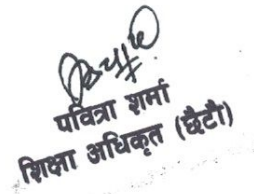 पवित्रा शर्मा
शिक्षा अधिकृत (छैटौं)